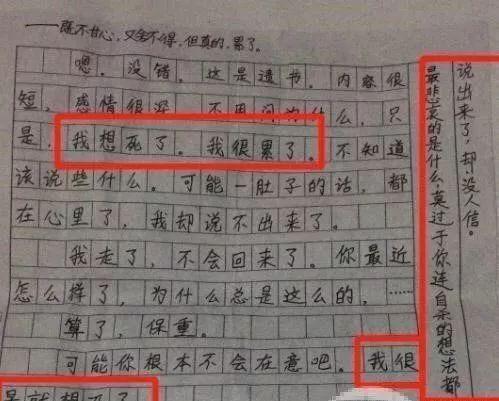 ——既不甘心，又舍不得，但真的，累了。
嗯。没错。这是遗书。内容很
短，感情很深，不要问为什么，只
是，我想死了。我很累了。不知道
该说些什么。可能一肚子的话，都
在心里了，我却说不出来了。
我走了，不会回来了。你最近
怎么样了，为什么总是这么的，……
算了，保重。
可能你根本不会在意吧。我很
最悲哀的是什么，莫过于你连自杀的想法都
说出来了，却没人信。